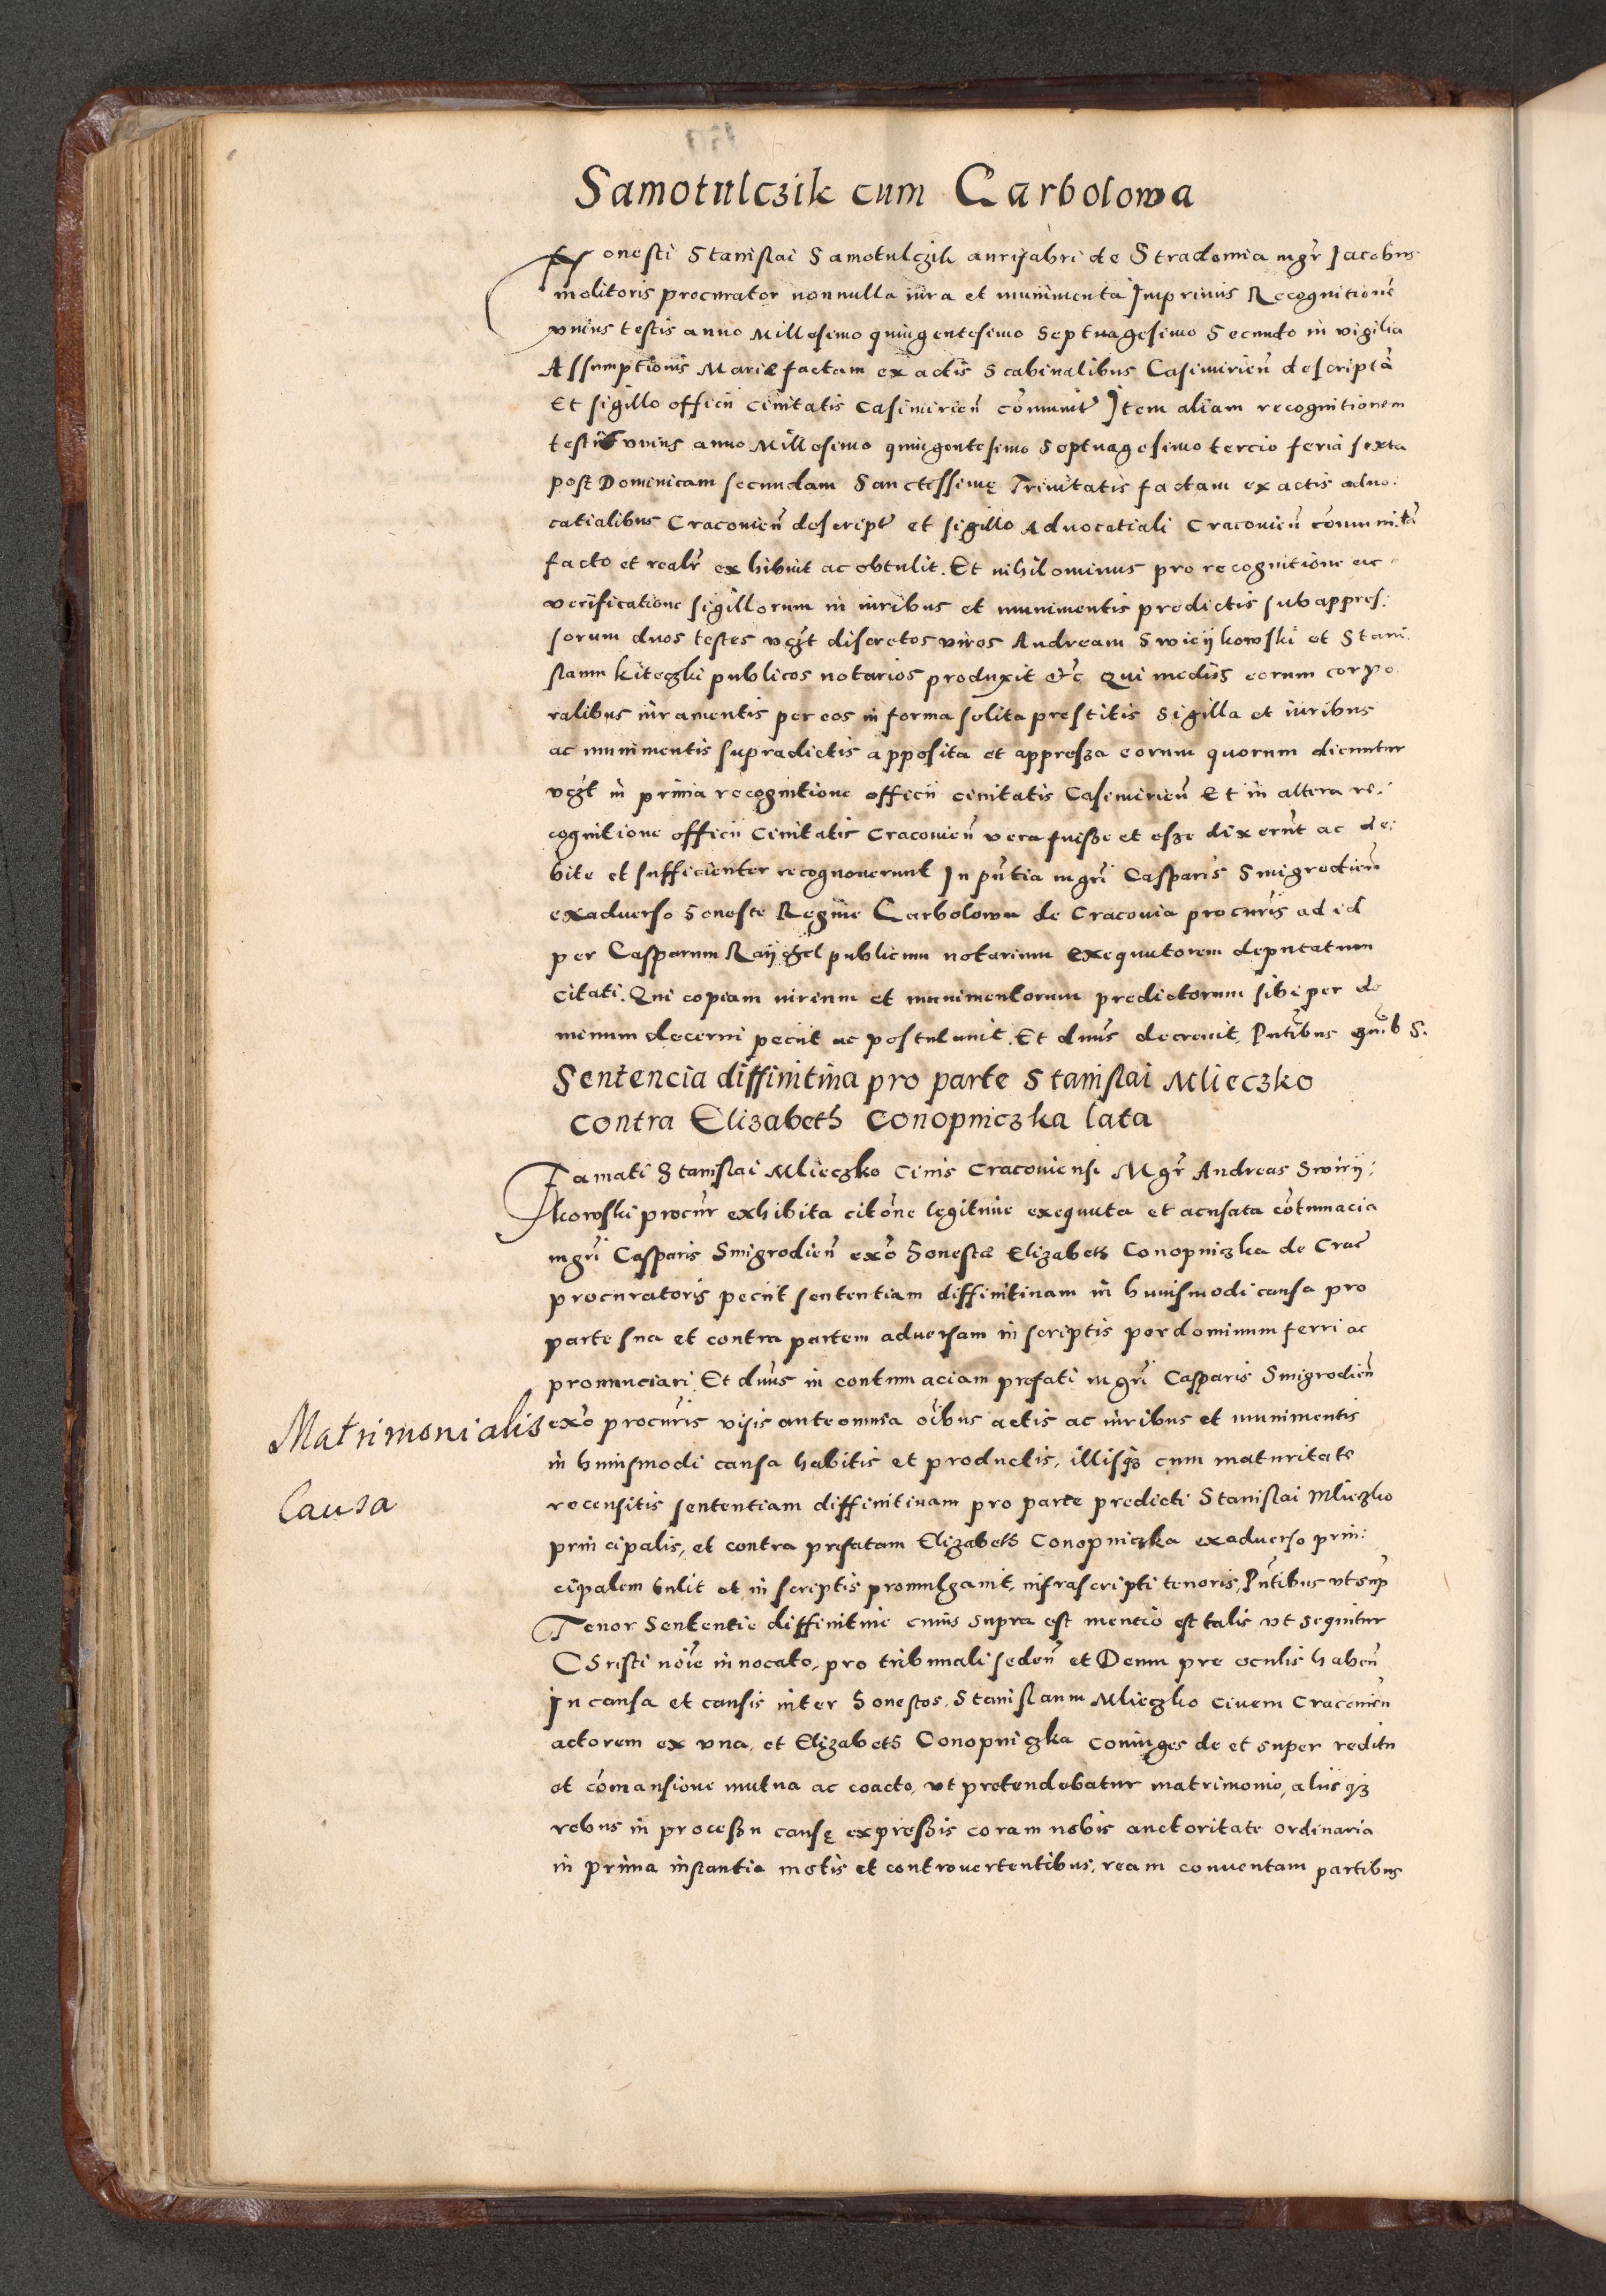 Samotulczik cum Carbolowa
Honesti Stanislai Samotulczik aurifabri de Stradomia mgr̃ Jacobus
molitoris procurator nonnulla iura et munimenta Imprimis Recognitionẽ
vnius testis anno Millesimo quingentesimo Septuagesimo Secundo in vigilia
Assumptionis Marie factam ex actis Scabinalibus Casimirieñ descriptã
Et sigillo officii ciuitatis Casimirieñ cõmunit̃ Item aliam recognitionem
testis vnius anno Millesimo quingentesimo Septuagesimo tercio feria sexta
post Dominicam secundam Sanctissimę Trinitatis factam ex actis aduo:
catialibus Cracouieñ descript̃ et sigillo Aduocatiali Cracouieñ cõmunitã
facto et realr̃ exhibuit ac obtulit. Et nihilominus pro recognitione ac
verificatione sigillorum in iuribus et munimentis predictis subappres:
sorum duos testes vcz̃t discretos viros Andream Swieijkowski et Stani
slaum Kiteczki publicos notarios produxit &c̃ Qui mediis eorum corpo
ralibus iuramentis per eos in forma solita prestitis Sigilla et iuribus
ac munimentis supradictis apposita et appressa eorum quorum dicuntur
vcz̃t in prima recognitione officii ciuitatis Casimirieñ Et in altera re:
cognitione officii Ciuitatis Cracouieñ vera fuisse et esse dixerũt ac de:
bite et sufficienter recognouerunt In pñtia mgrĩ Casparis Smigrodieñ
exaduerso honeste Regine Carbolowa de Cracouia procur̃is ad id
per Casparum Raijczel publicum notarium exequutorem deputatum
citati. Qui copiam iurium et munimentorum predictorum sibi per do
minum decerni peciit ac postulauit. Et dñus decreuit. Pñtibus quib S.
Sentencia diffinitiua pro parte Stanislai Mlieczko
contra Elizabeth Conopniczka lata
Famati Stanislai Mlieczko Ciuis Cracouiensi Mgr̃ Andreas Swieij:
kowski procur̃ exhibita citõne legitime exequuta et acusata cõtumacia
mgrĩ Casparis Smigrodieñ exõ honestæ Elizabeth Conopniczka de Crac̃
procuratoris peciit sententiam diffinitiuam in huiusmodi causa pro
parte sua et contra partem aduersam in scriptis per dominum ferri ac
pronunciari Et dñus in contumaciam prefati mgrĩ Casparis Smigrodieñ
Matrimonialis
Causa
exõ procur̃is visis ante omnia oĩbus actis ac iuribus et munimentis
in huiusmodi causa habitis et productis, illisqȝ cum maturitate
recensitis sententiam diffinitiuam pro parte predicti Stanislai Mlieczko
principalis, et contra prefatam Elizabeth Conopniczka exaduerso prin:
cipalem tulit et in scriptis promulgauit, infrascripti tenoris, Pñtibus vt sup̃
Tenor Sententie diffinitiue cuius supra est mentio est talis vt sequitur
Christi nõie inuocato, pro tribunali sedeñ et Deum pre oculis habeñ
In causa et causis inter honestos Stanislaum Mlieczko Ciuem Cracouieñ
actorem ex vna, et Elizabeth Conopniczka coniuges de et super reditu
et cõmansione mutua ac coacto, vt pretendebatur matrimonio, aliisqȝ
rebus in processu causę expressis coram nobis auctoritate ordinaria
in prima instantia motis et controuertentibus, ream conuentam partibus